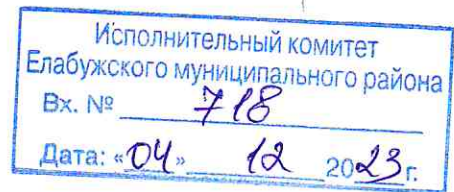 Исполнительный комитет
Елабужского муниципального района
Вх. № 718
Дата: «04» 12 2023 г.